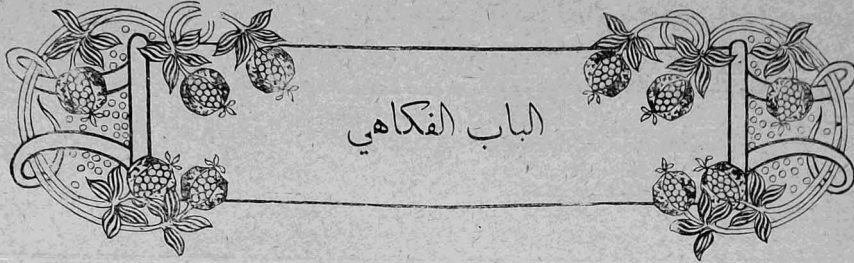 الباب الفكاهي